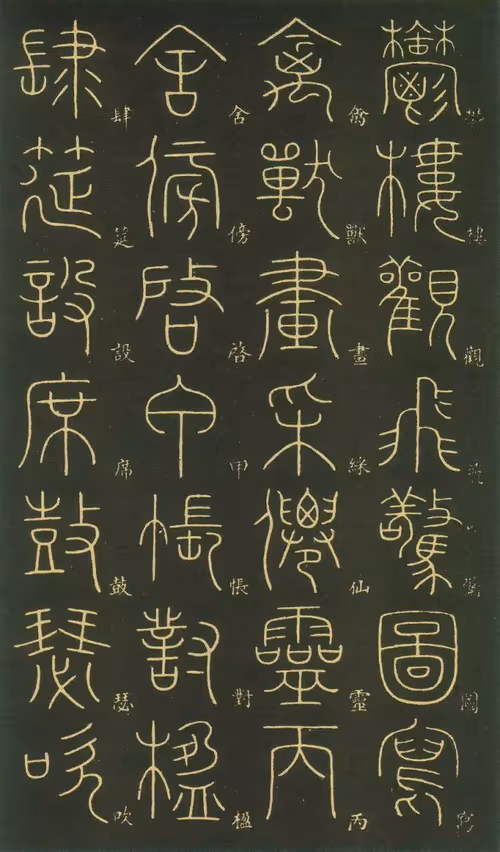 鬱樓觀飛驚圖寫
鬱樓觀飛驚圖寫
禽獸畫采僊靈丙
禽獸畫綵仙靈丙
舍傍启甲帳對楹
舍傍啓甲帳對楹
肆筵設席鼓瑟吹
肆筵設席鼓瑟吹